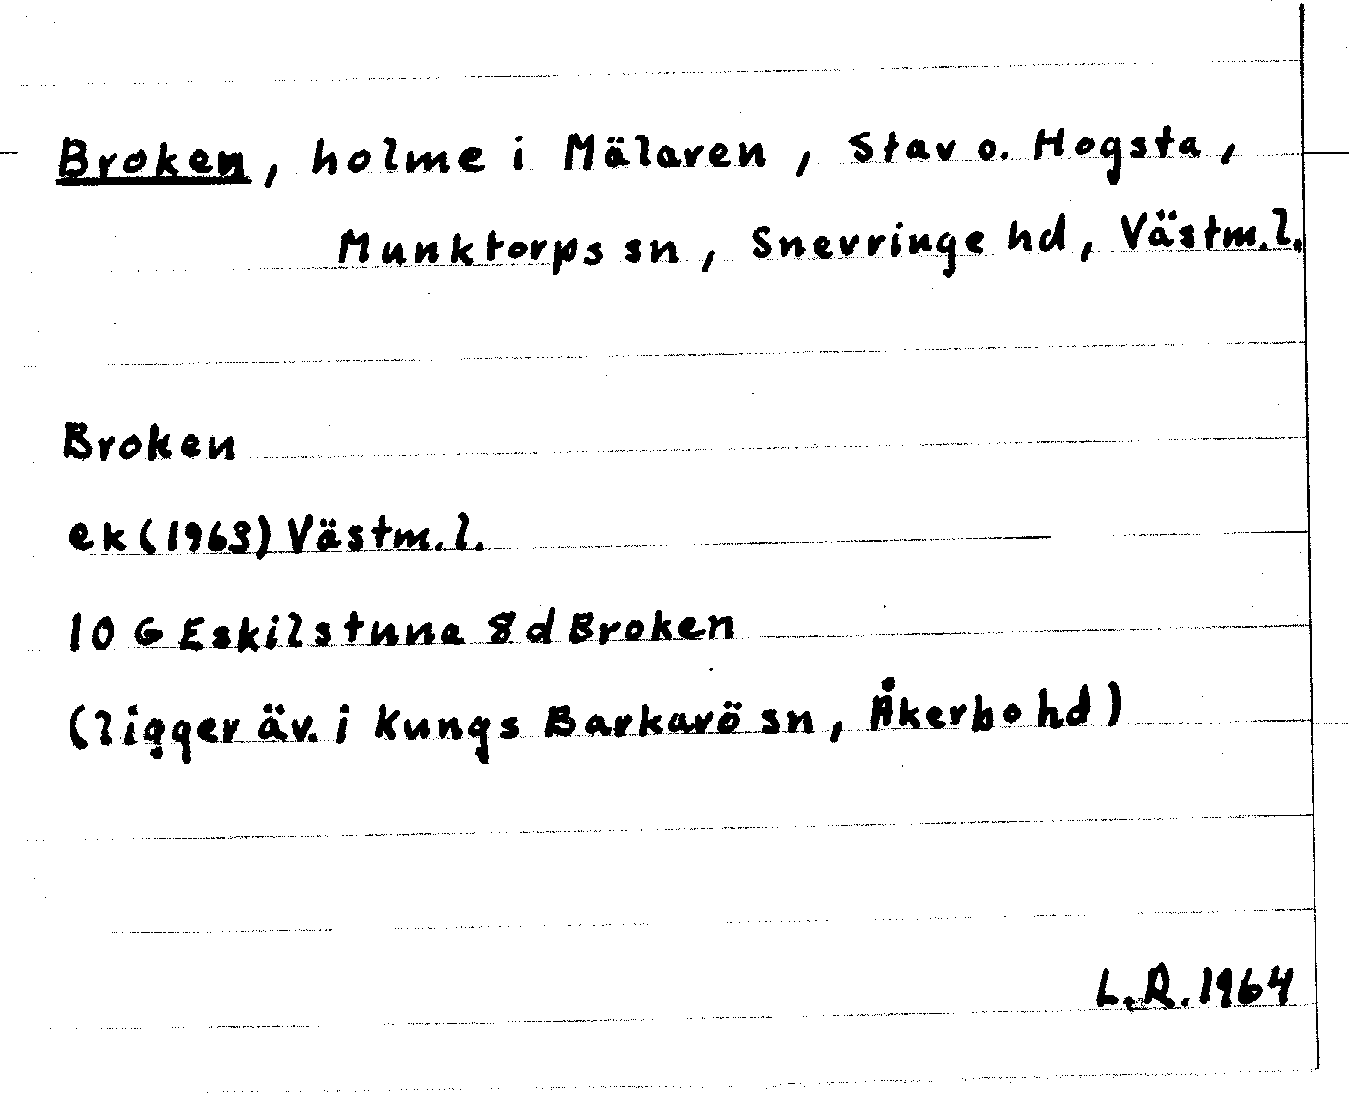 Broken, holme i Mälaren, Stav o. Hogsta,
Munktorps sn, Snevringe hd, Västm.l.
Broken
ek (1963) Västm.l.
10 G Eskilstuna 8 d Broken
(ligger äv. i Kungs Barkarö sn, Åkerbo hd)
L.R. 1964